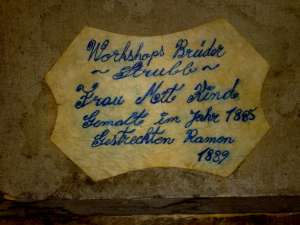 Workshops Brüder
~ Strubb ~
Frau Mett Kind
Gemalte im Jahr 1885
Gestrechten Ramon
1889